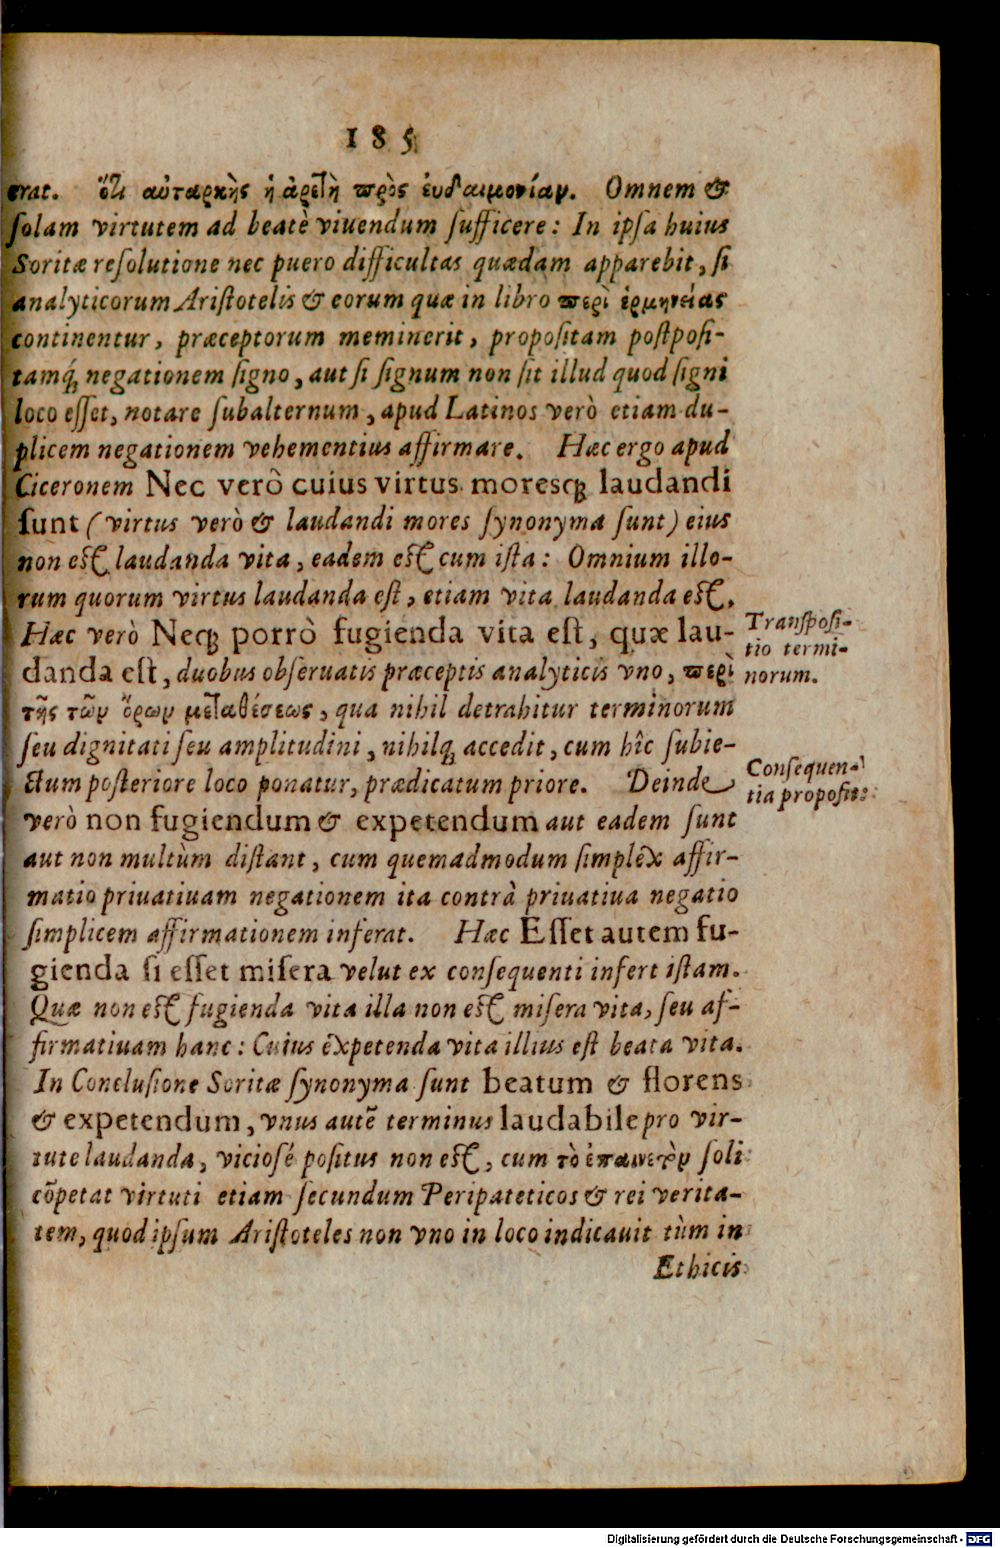 185
erat. ὅτι αὐταρκὴς ἡ ἀρετὴ πρὸς ἐυδαιμονίαν. Omnem &
ſolam virtutem ad beatè viuendum ſufficere: In ipſa huius
Soritæ reſolutione nec puero difficultas quædam apparebit, ſi
analyticorum Ariſtotelis & eorum quæ in libro περὶ ἑρμηνείας
continentur, præceptorum meminerit, propoſitam poſtpoſi-
tamq́ꝫ negationem ſigno, aut ſi ſignum non ſit illud quod ſigni
loco eſſet, notare ſubalternum, apud Latinos verò etiam du-
plicem negationem vehementius affirmare. Hæc ergo apud
Ciceronem Nec verò cuius virtus moresqꝫ laudandi
ſunt (virtus verò & laudandi mores ſynonyma ſunt) eius
non eſt laudanda vita, eadem eſt cum iſta: Omnium illo-
rum quorum virtus laudanda eſt, etiam vita laudanda eſt.
Hæc verò Neqꝫ porrò fugienda vita eſt, quæ lau-
danda eſt, duobus obſeruatis præceptis analyticis vno, περὶ
τῆς τῶν ὅρων μεταθέσεως, qua nihil detrahitur terminorum
ſeu dignitati ſeu amplitudini, nihilqꝫ accedit, cum hîc ſubie-
ctum poſteriore loco ponatur, prædicatum priore. Deinde
verò non fugiendum & expetendum aut eadem ſunt
aut non multùm diſtant, cum quemadmodum ſimplex affir-
matio priuatiuam negationem ita contrà priuatiua negatio
ſimplicem affirmationem inferat. Hæc Eſſet autem fu-
gienda ſi eſſet miſera velut ex conſequenti infert iſtam.
Quæ non eſt fugienda vita illa non eſt miſera vita, ſeu af-
firmatiuam hanc: Cuius expetenda vita illius eſt beata vita.
In Concluſione Soritæ ſynonyma ſunt beatum & florens
& expetendum, vnus autē terminus laudabile pro vir-
tute laudanda, viciosé poſitus non eſt, cum τὸ ἐπαινετὸν ſoli
cōpetat virtuti etiam ſecundum Peripateticos & rei verita-
tem, quod ipſum Ariſtoteles non vno in loco indicauit tùm in
Ethicis
Tranſpoſi-
tio termi-
norum.
Conſequen-
tia propoſit:
Digitalisierung gefördert durch die Deutsche Forschungsgemeinschaft - DFG